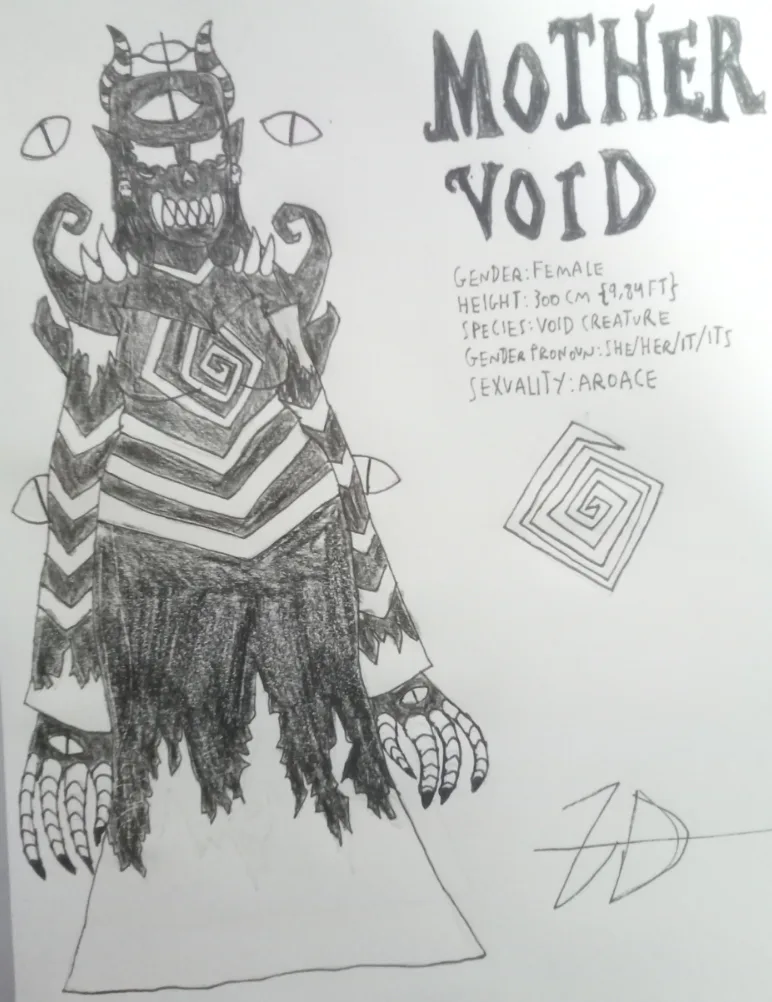 MOTHER
VOID
GENDER:FEMALE
HEIGHT:300 CM {9,84 FT}
SPECIES:VOID CREATURE
GENDER PRONOUN:SHE/HER/IT/ITS
SEXVALITY:AROACE